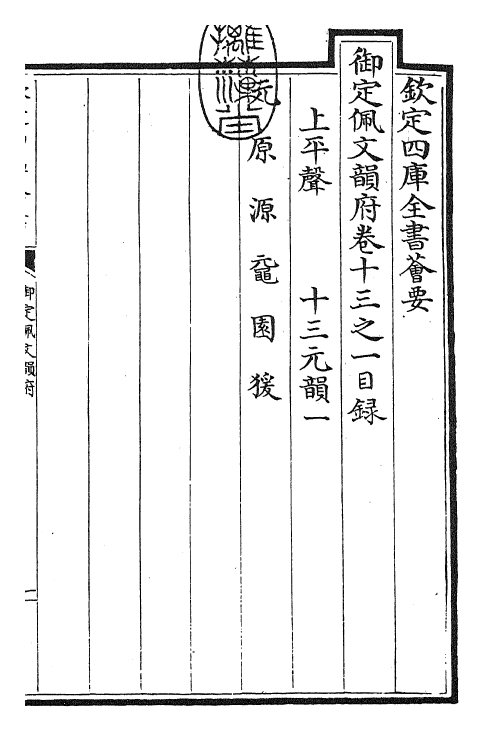 欽定四庫全書薈要
御定佩文韻府卷十三之一目録
上平聲 十三元韻一
元 原 源 黿 園 猨
御定佩文韻府